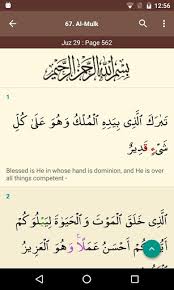 12:56
67. Al-Mulk
Juz 29 : Page 562
بِسْمِ اللَّهِ الرَّحْمَٰنِ الرَّحِيمِ
1
تَبَٰرَكَ ٱلَّذِى بِيَدِهِ ٱلْمُلْكُ وَهُوَ عَلَىٰ كُلِّ
شَىْءٍ قَدِيرٌ
Blessed is He in whose hand is dominion, and He is over
all things competent -
2
ٱلَّذِى خَلَقَ ٱلْمَوْتَ وَٱلْحَيَوٰةَ لِيَبْلُوَكُمْ
أَيُّكُمْ أَحْسَنُ عَمَلًا ۚ وَهُوَ ٱلْعَزِيزُ